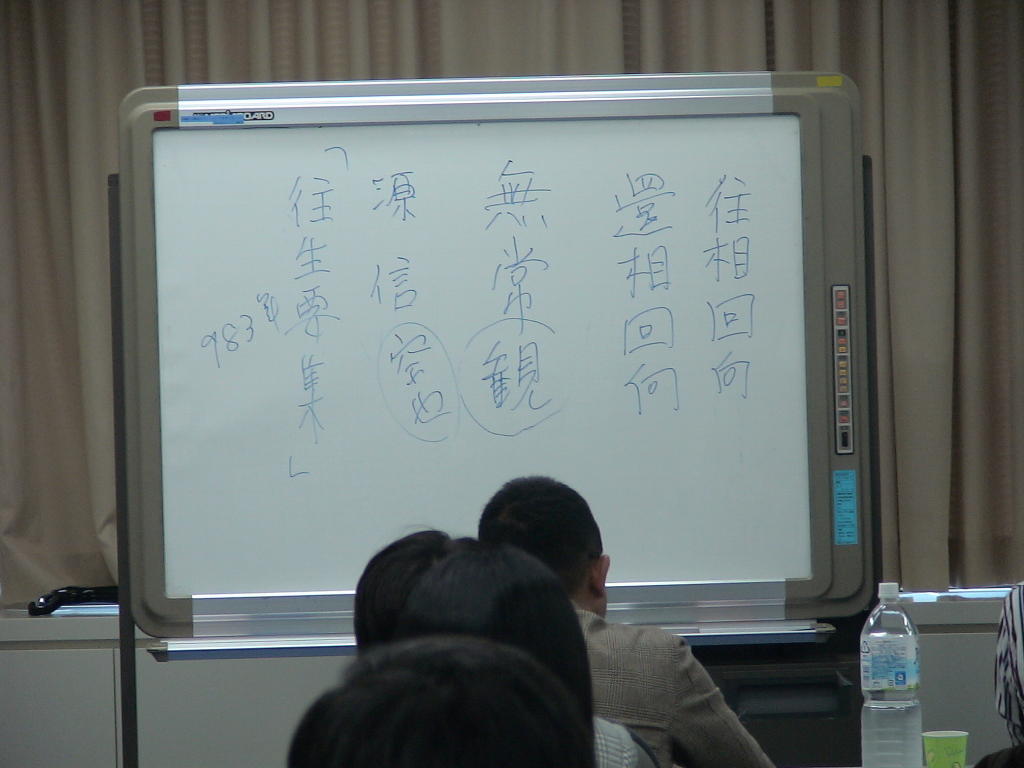 往相回向
還相回向
無常観
源信
「往生要集」
983年